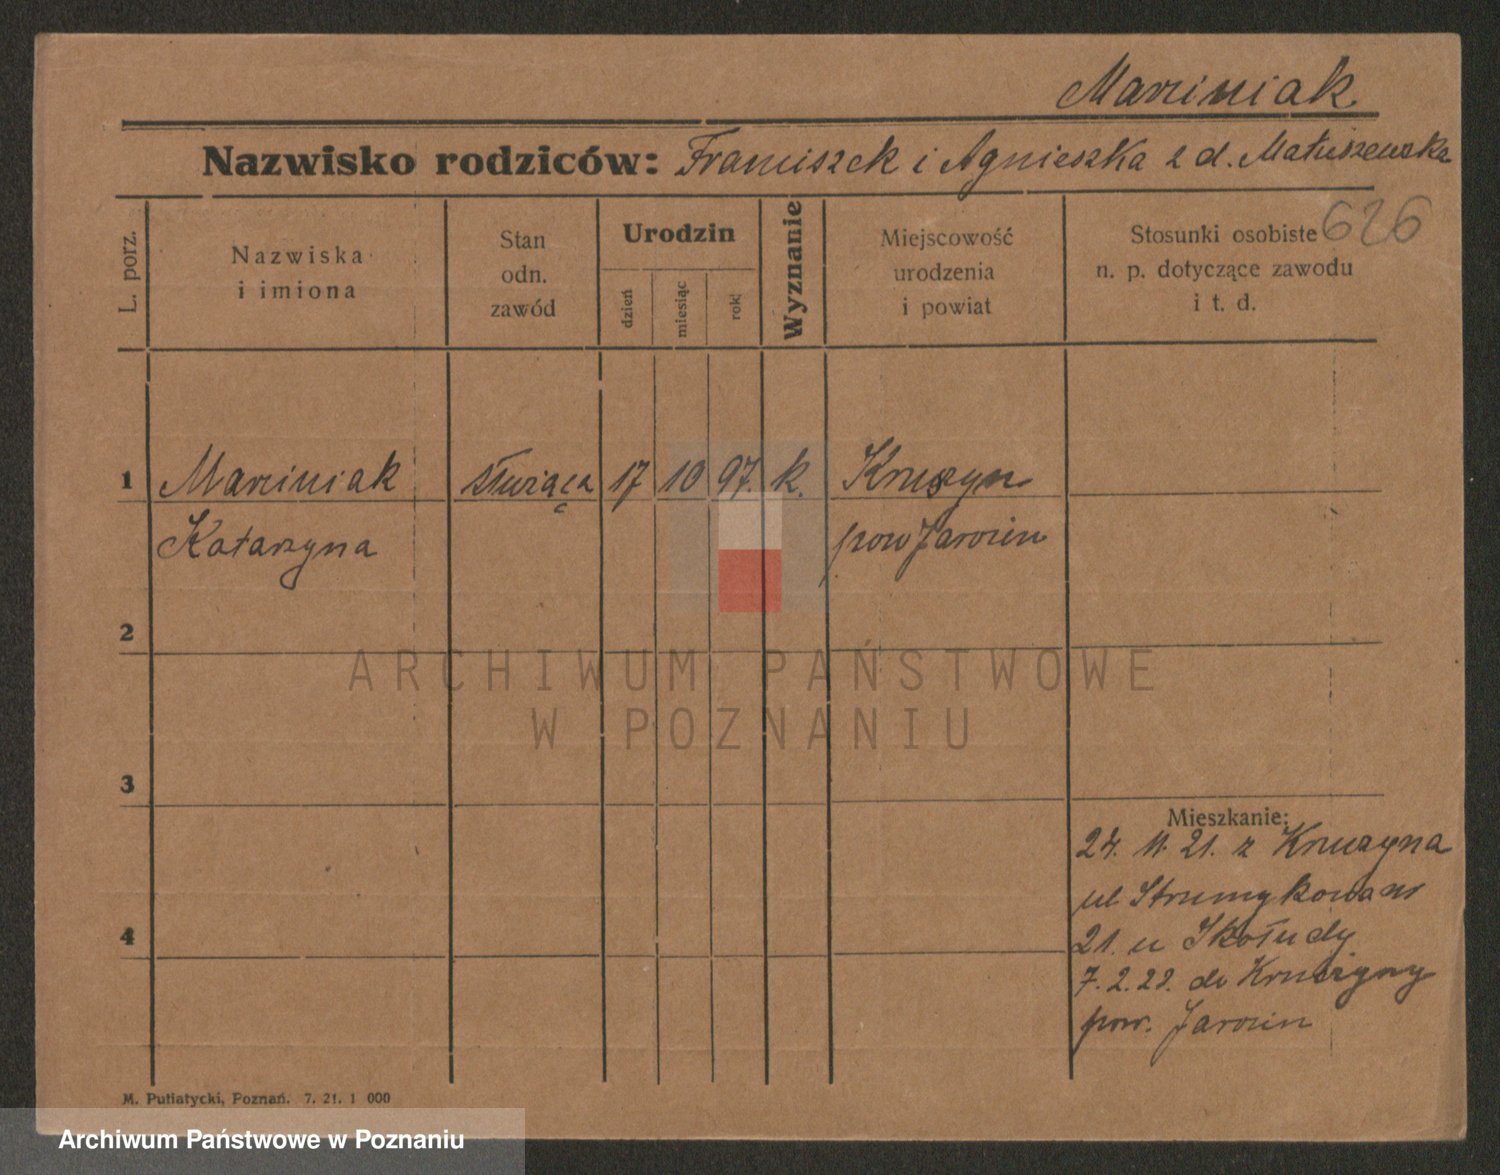 Marciniak
Nazwisko rodziców: Franciszek i Agnieszka z d. Matuszewska
626
L. porz.
Nazwiska
i imiona
Stan
odn.
zawód
Urodzin
dzień
miesiąc
rok
Wyznanie
Miejscowość
urodzenia
i powiat
Stosunki osobiste
n. p. dotyczące zawodu
i t. d.
1 Marciniak służąca 17 10 97. k. Kruszyn
Katarzyna pow Jarocin
2
ARCHIWUM PAŃSTWOWE
W POZNANIU
3
Mieszkanie:
24. 11. 21. z Kruzyna
ul Strumykowa
4
21. u Skołudy
7. 2. 22. do
pow. Jarocin
M. Putiatycki, Poznań. 7. 21. 1 000
Archiwum Państwowe w Poznaniu